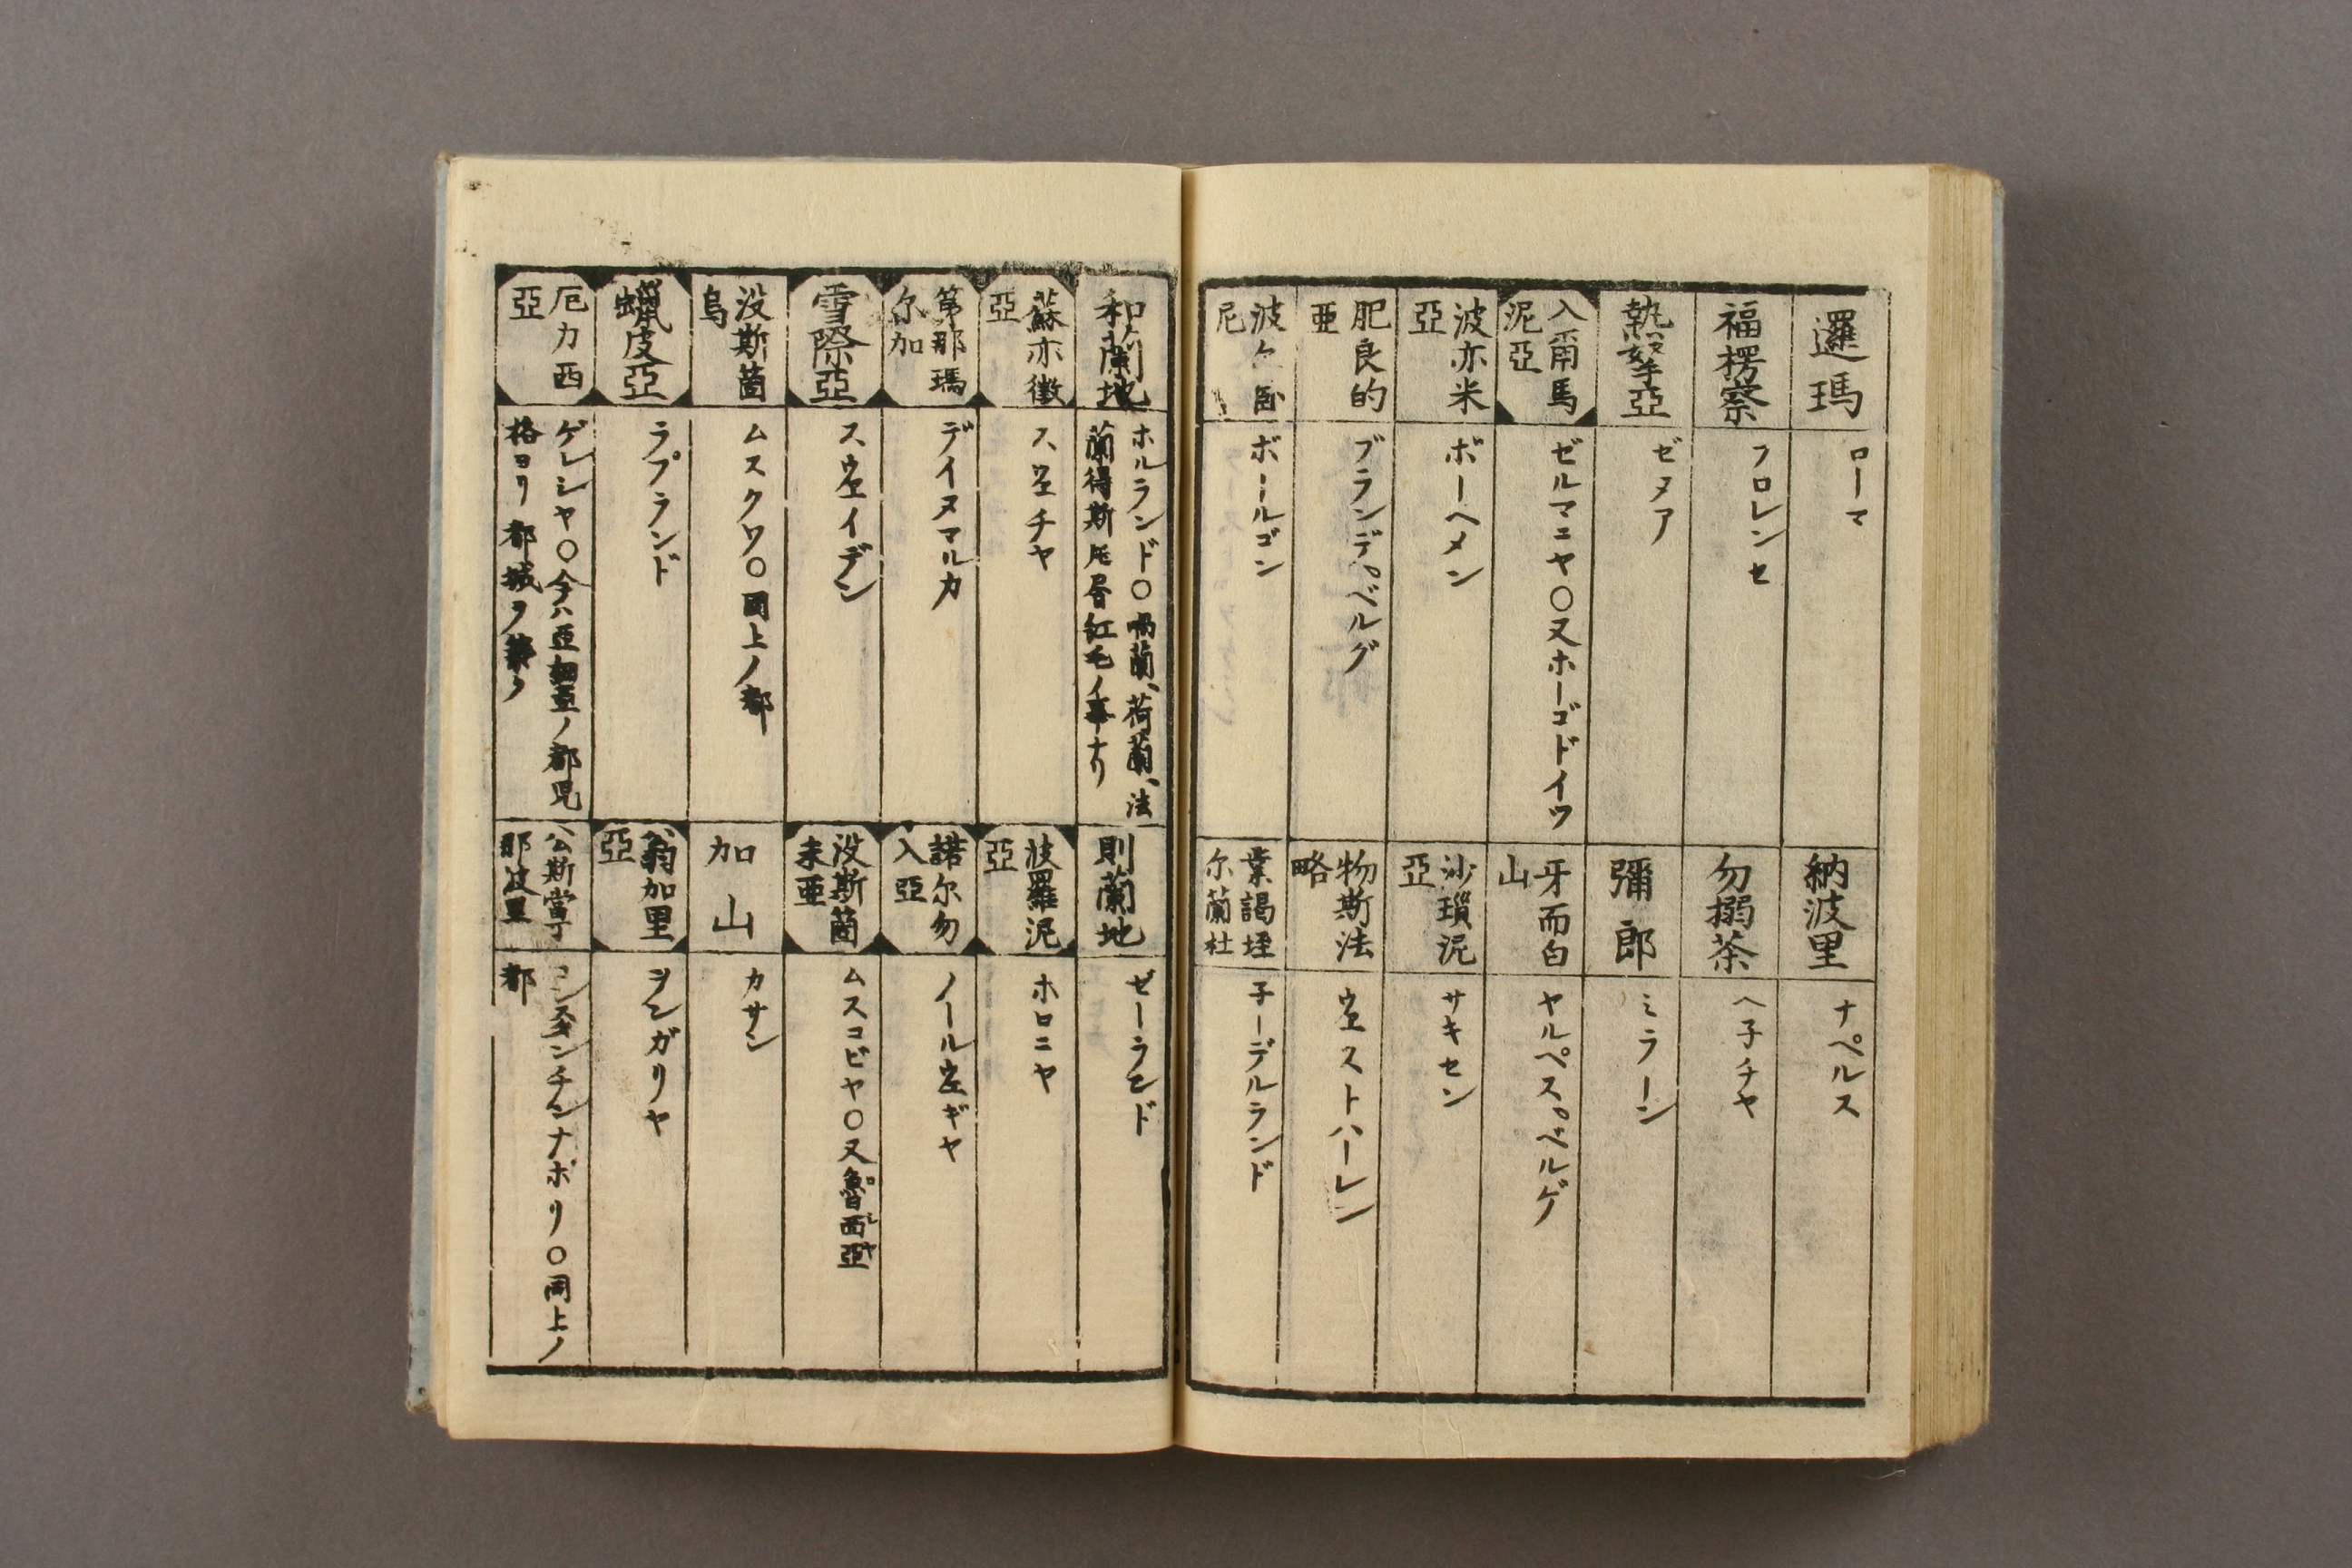 邏瑪
ローマ
納波里
ナペルス
福楞察
フロレンセ
勿搦茶
ヘ子チヤ
熱孥亞
ゼヌア
彌郎
ミラーン
入爾馬
泥亞
ゼルマニヤ〇又ホーゴドイツ
牙而白
山
ヤルペスベルゲ
波亦米
亞
ボーヘメン
沙瑣泥
亞
サキセン
肥良的
亜
ブランデベルグ
物斯法
略
ウエストハーレン
波
尼
ボールゴン
業謁垤
尔蘭杜
子ーデルランド
和蘭地
ホルランド〇喎蘭、荷蘭、法
蘭得斯
紅毛ノ事ナリ
則蘭地
ゼーランド
蘇亦微
亞
スウエチヤ
波羅泥
亞
ホロニヤ
第那瑪
尔加
デイヌマルカ
諾尔勿
入亞
ノールウエギヤ
雪際亞
スウエイデン
没斯箇
未亜
ムスコビヤ〇又魯西亞
没斯箇
烏
ムスクワ〇同上ノ都
加山
カサン
蠟皮亞
ラプランド
翁加里
亞
ヲンガリヤ
厄力西
亞
ゲレシヤ〇今ハ亞細亜ノ都児
格ヨリ都城ヲ築ク
公斯當丁
那波里
コンスタンチンナポリ〇同上ノ
都